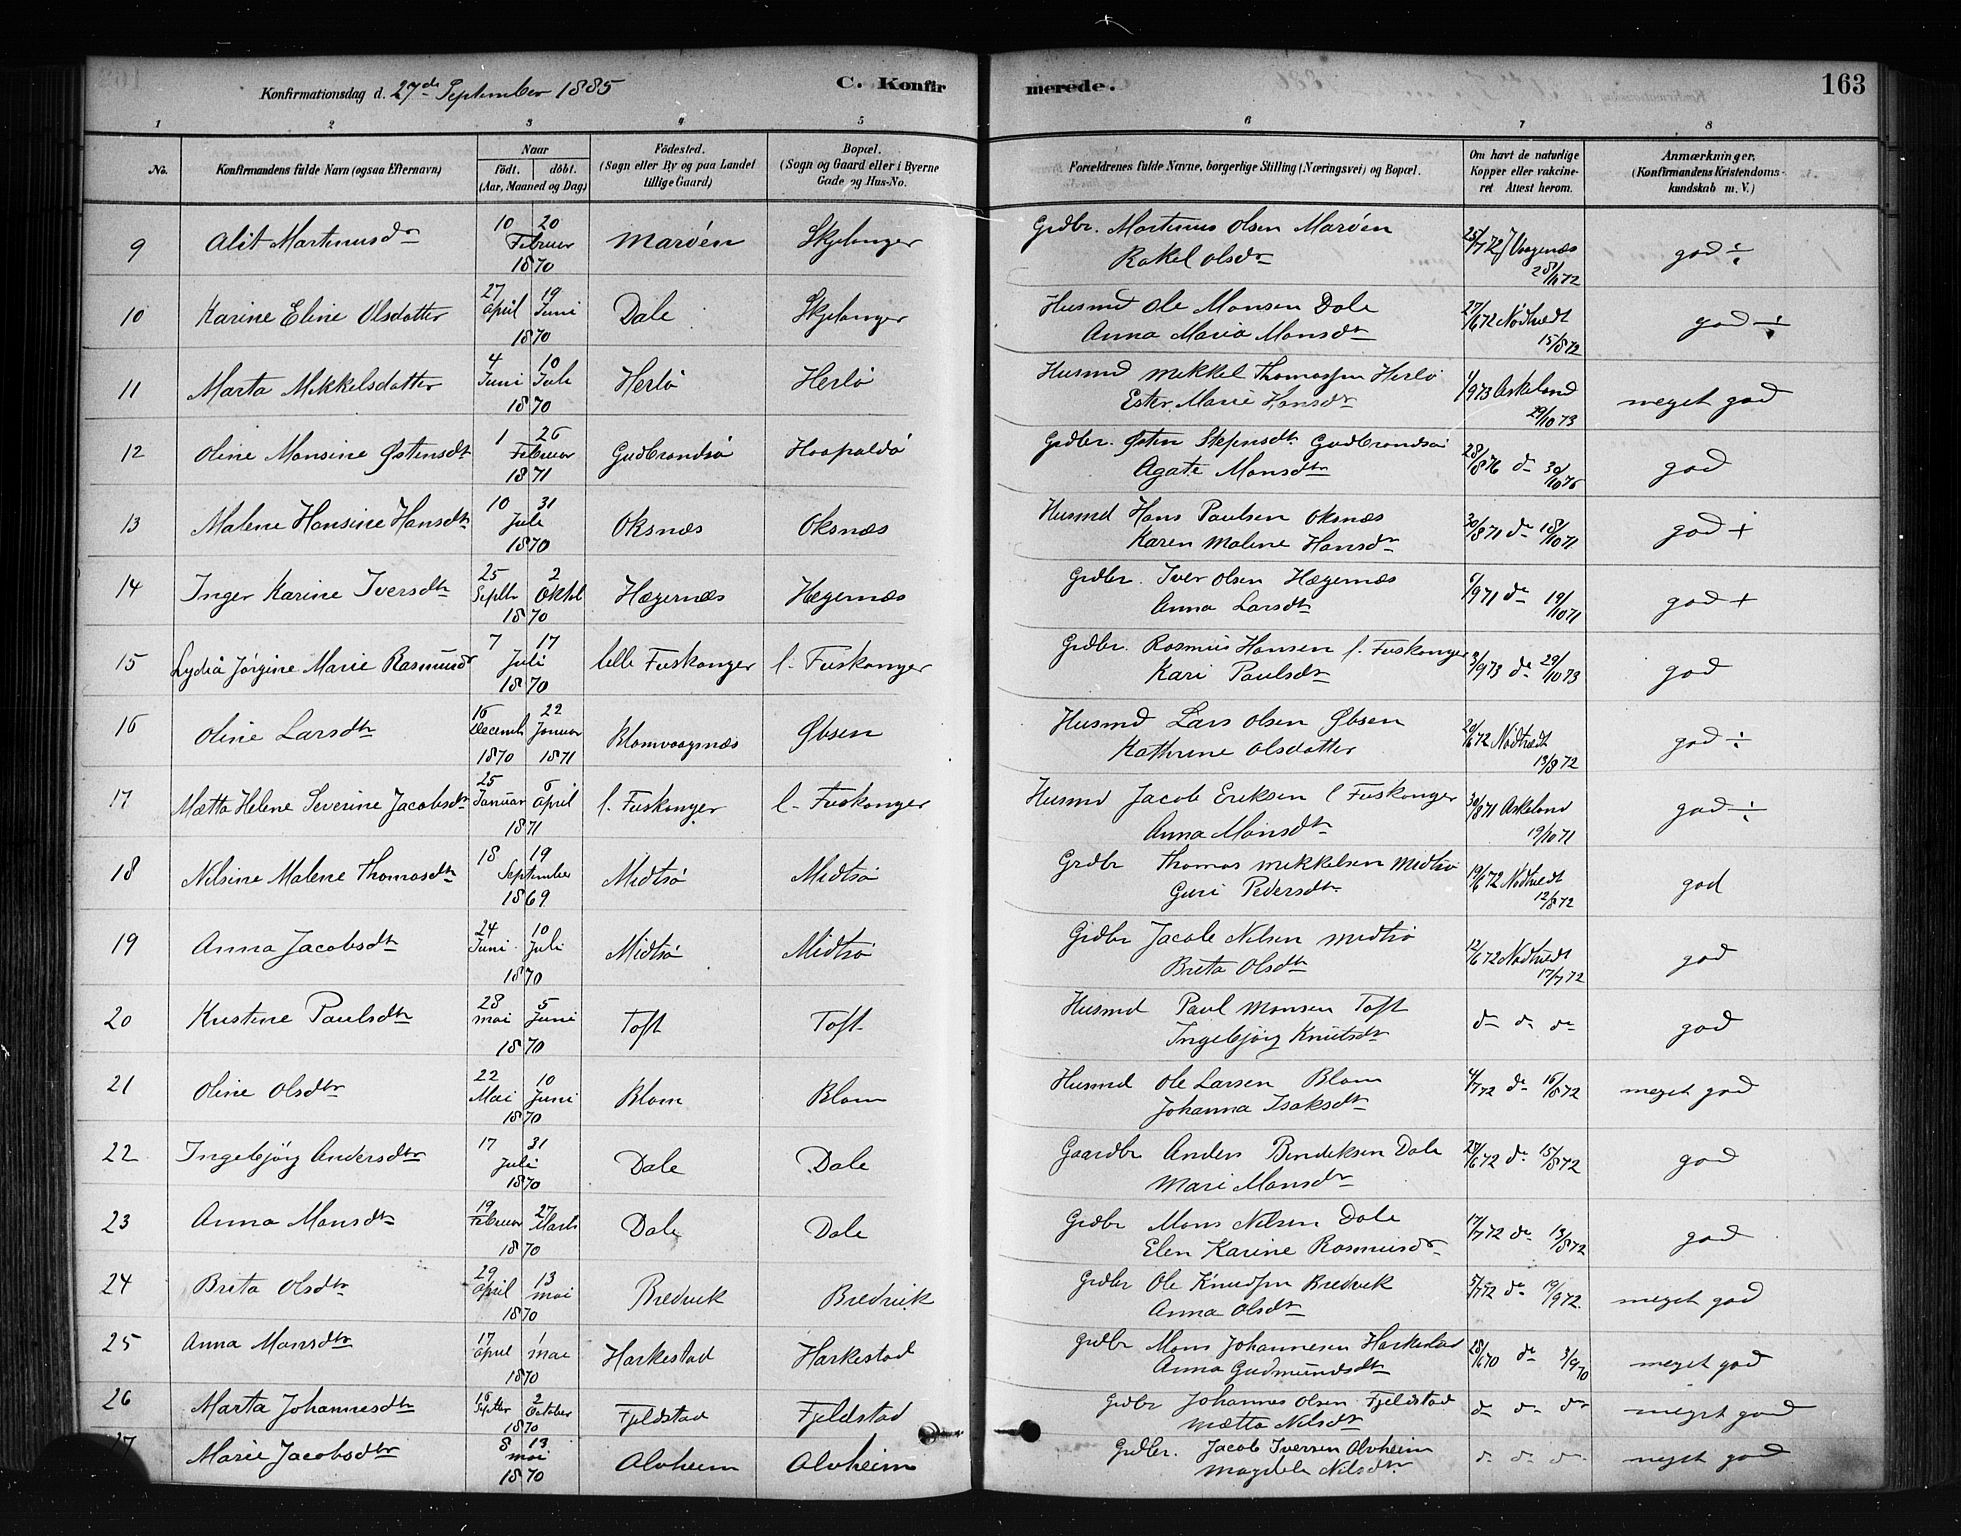 Konfirmationsdag d. 27de September 1885
C. Konfir
merede.
163
1 2 3 4 5 6 7 8
No.
Konfirmandens fulde Navn (ogsaa Efternavn)
Naar
født. døbt.
(Aar, Maaned og Dag)
Fødested.
(Sogn eller By og paa Landet
tillige Gaard)
Bopæl.
(Sogn og Gaard eller i Byerne
Gade og Hus-No.
Forældrenes fulde Navne, borgerlige Stilling (Næringsvei) og Bopæl.
Om havt de naturlige
Kopper eller vakcine-
ret Attest herom.
Anmærkninger.
(Konfirmandens Kristendoms-
kundskab m. V.)
9 Alit Martinusdr 10 20 Februar 1870 Marøen Skjelanger Grdbr. Martinus Olsen Marøen
Rakel Olsdr 28/11 72 god ÷
10 Karine Eline Olsdatter 27 April 19 Juni 1870 Dale Skjelanger Husmd Ole Monsen Dale
Anna Maria Monsdtr 27/6 72 Nødtvedt 13/8 72 god ÷
11 Marta Mikkelsdatter 4 Juni 10 Juli 1870 Herlø Herlø Husmd Mikkel Thomassen Herlø
Ester Marie Hansdr 1/9 73 Askeland 29/10 73 meget god
12 Oline Monsine Østensdtr 1 26 Februar 1871 Gudbrandsø Grdbr. Østen Gudbrandsø
Agate Monsdtr 28/8 76 do 30/10 76 god
13 Malene Hansine Hansdtr 10 31 Juli 1870 Oksnæs Oksnæs Husmd Hans Paulsen Oksnæs
Karen Malene Hansdr 30/8 71 do 18/10 71 god +
14 Inger Karine Iversdtr 25 Septbr 2 Oktbl 1870 Hægernæs Hægernæs Grdbr. Iver Olsen Hægernæs
Anna Larsdtr 6/9 71 do 19/10 71 god +
15 Lydia Jørgine Marie Rasmusdr 7 17 Juli 1870 lille Fuskanger l. Fuskanger Grdbr. Rasmus Hansen l. Fuskanger
Kari Paulsdtr 3/9 73 do 29/10 73 god
16 Oline Larsdtr 16 Decemb 1870 22 Januar 1871 Blomvaagsnæs Øbsen Husmd Lars Olsen Øbsen
Kathrine Olsdatter 20/6 72 Nødtvedt 13/8 72 god ÷
17 Mætta Helene Severine Jacobsdtr 25 Januar 6 April 1871 l. Fuskanger l. Fuskanger Husmd Jacob Eriksen l Fuskanger
Anna Monsdtr 30/8 71 Askeland 19/10 71 god ÷
18 Nilsine Malene Thomasdtr 18 19 September 1869 Midtsø Midtsø Grdbr Thomas Mikkelsen Midtsø
Guri Pedersdtr 19/6 72 Nødtvedt 12/8 72 god
19 Anna Jacobsdtr 24 Juni 10 Juli 1870 Midtsø Midtsø Grdbr Jacob Nilsen Midtsø
Brita Olsdtr 12/6 72 Nødtvedt 17/7 72 god
20 Kristine Paulsdtr 28 Mai 5 Juni 1870 Toft Toft Husmd Paul Monsen Toft
Ingebjørg Knutsdtr do do do god
21 Oline Olsdtr 22 Mai 10 Juni 1870 Blom Blom Husmd Ole Larsen Blom
Johanna Isaksdtr 4/7 72 do 16/8 72 meget god
22 Ingebjørg Andersdtr 17 31 Juli 1870 Dale Dale Gaardbr Anders Bendiksen Dale
Mari Monsdtr 28/6 72 do 15/8 72 god
23 Anna Monsdtr 19 Februar 27 Marts 1870 Dale Dale Grdbr Mons Nilsen Dale
Elen Karine Rasmusdr 17/7 72 do 13/8 72 god
24 Brita Olsdtr 29 April 13 mai 1870 Bredvik Bredvik Grdbr Ole Knudsen Bredvik
Anna Olsdtr 5/7 72 do 19/9 72 meget god
25 Anna Monsdtr 17 April 1 mai 1870 Harkestad Harkestad Grdbr Mons Johannesen Harkestad
Anna Gudmundsdtr 28/6 70 do 3/9 70 meget god
26 Marta Johannesdtr 16 Septbr 2 October 1870 Fjeldstad Fjeldstad Grdbr Johannes Olsen Fjeldstad
Mætta Nilsdtr do do do meget god
27 Marie Jacobsdtr 8 13 mai 1870 Alvheim Alvheim Grdbr. Jacob Iversen Alvheim
Magdela Nilsdtr do do do meget god